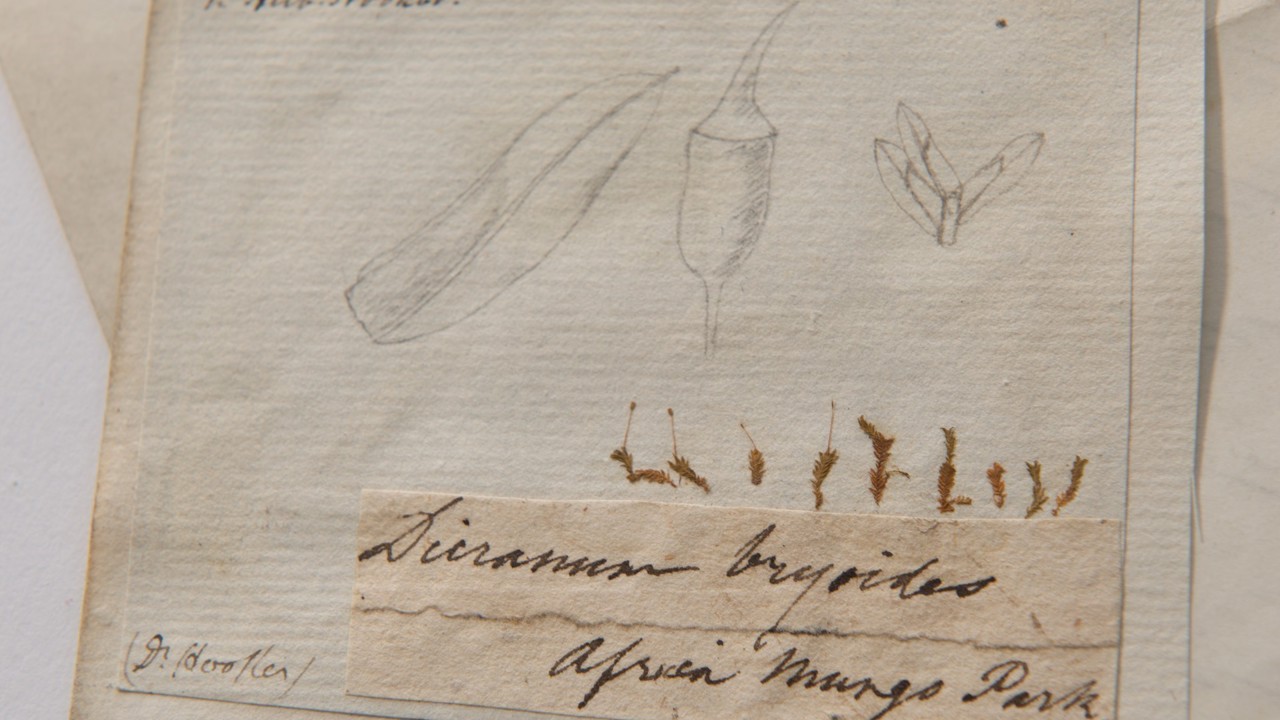 Dicranum bryoides
Africa Mungo Park
(Dr. Hooker)